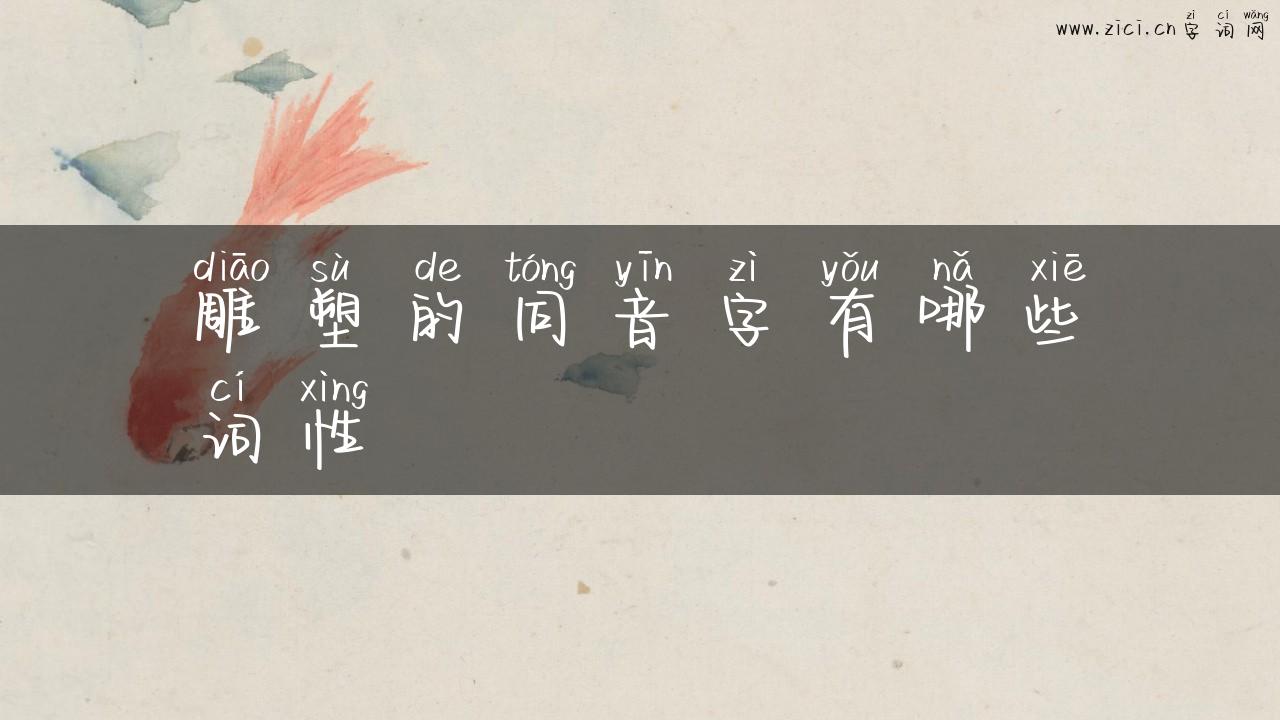 zì cí wǎng
www.zici.cn字词网
diāo sù de tóng yīn zì yǒu nǎ xiē
雕塑的同音字有哪些
cí xìng
词性